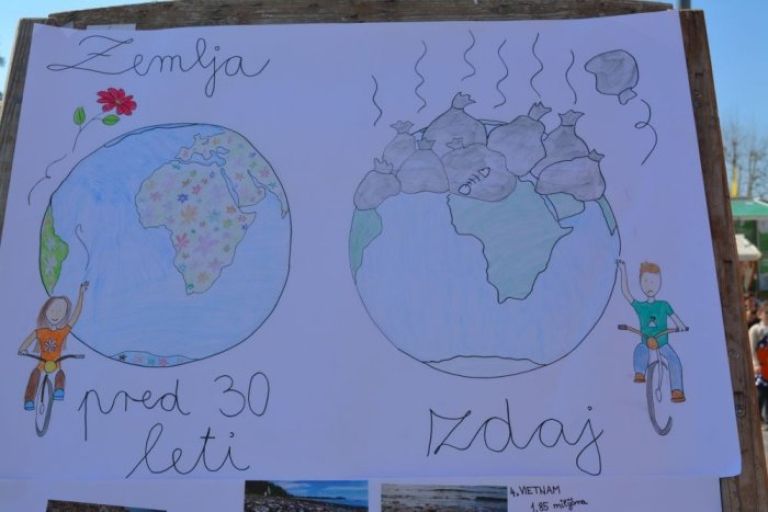 Zemlja
pred 30
leti
Izdaj
4. VIETNAM
1.85 milijona